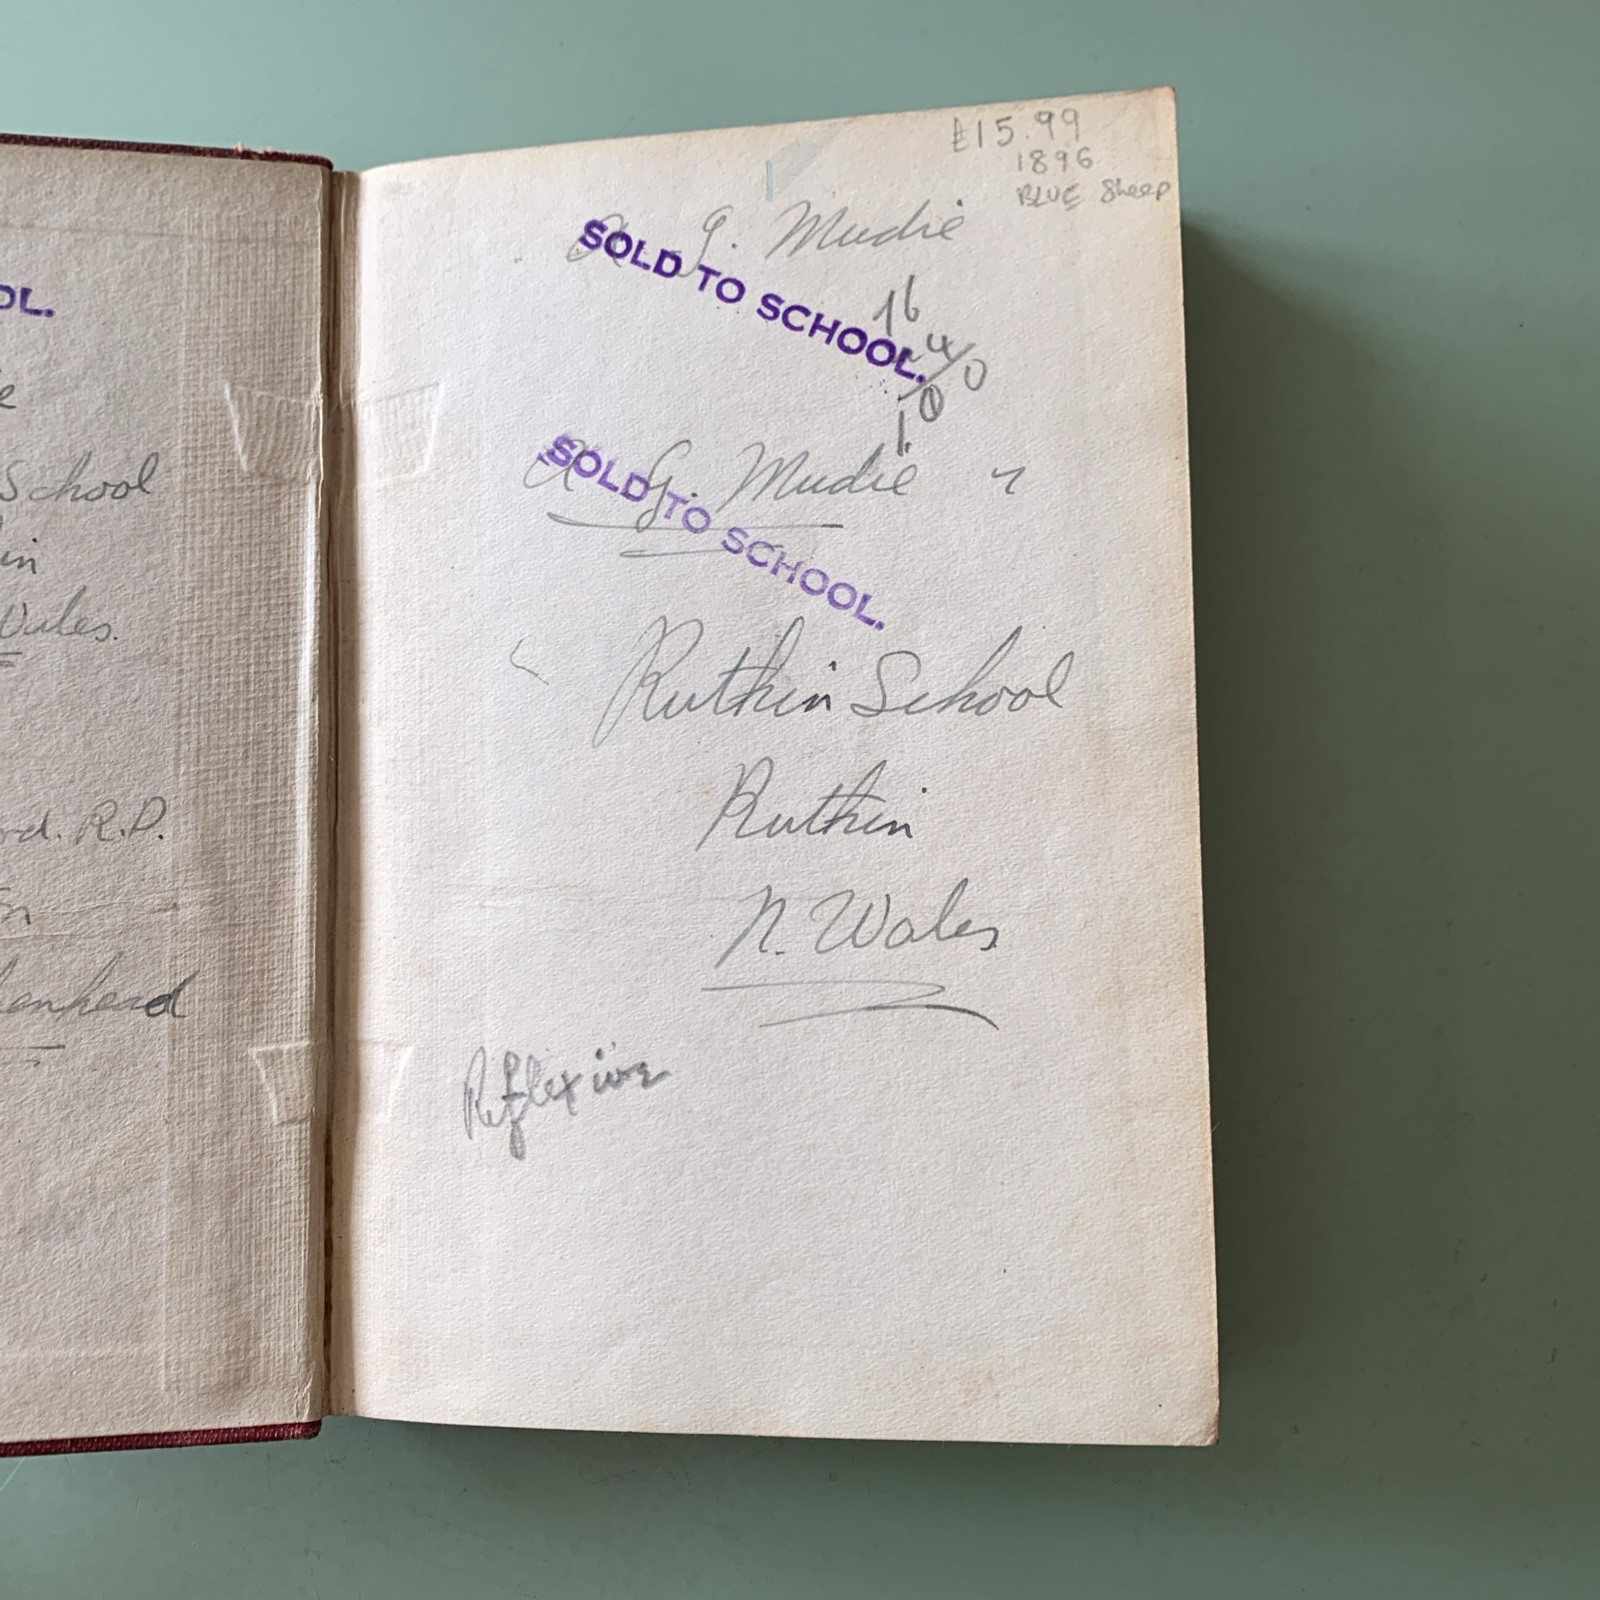 OL.
e
School
in
Wales.
rd. R.D.
on
kenhead
£15.99
1896
BLUE Sheep
A G. Mudie
SOLD TO SCHOOL.
16
A G. Mudie
SOLD TO SCHOOL.
Ruthin School
Ruthin
N. Wales
Reflexive